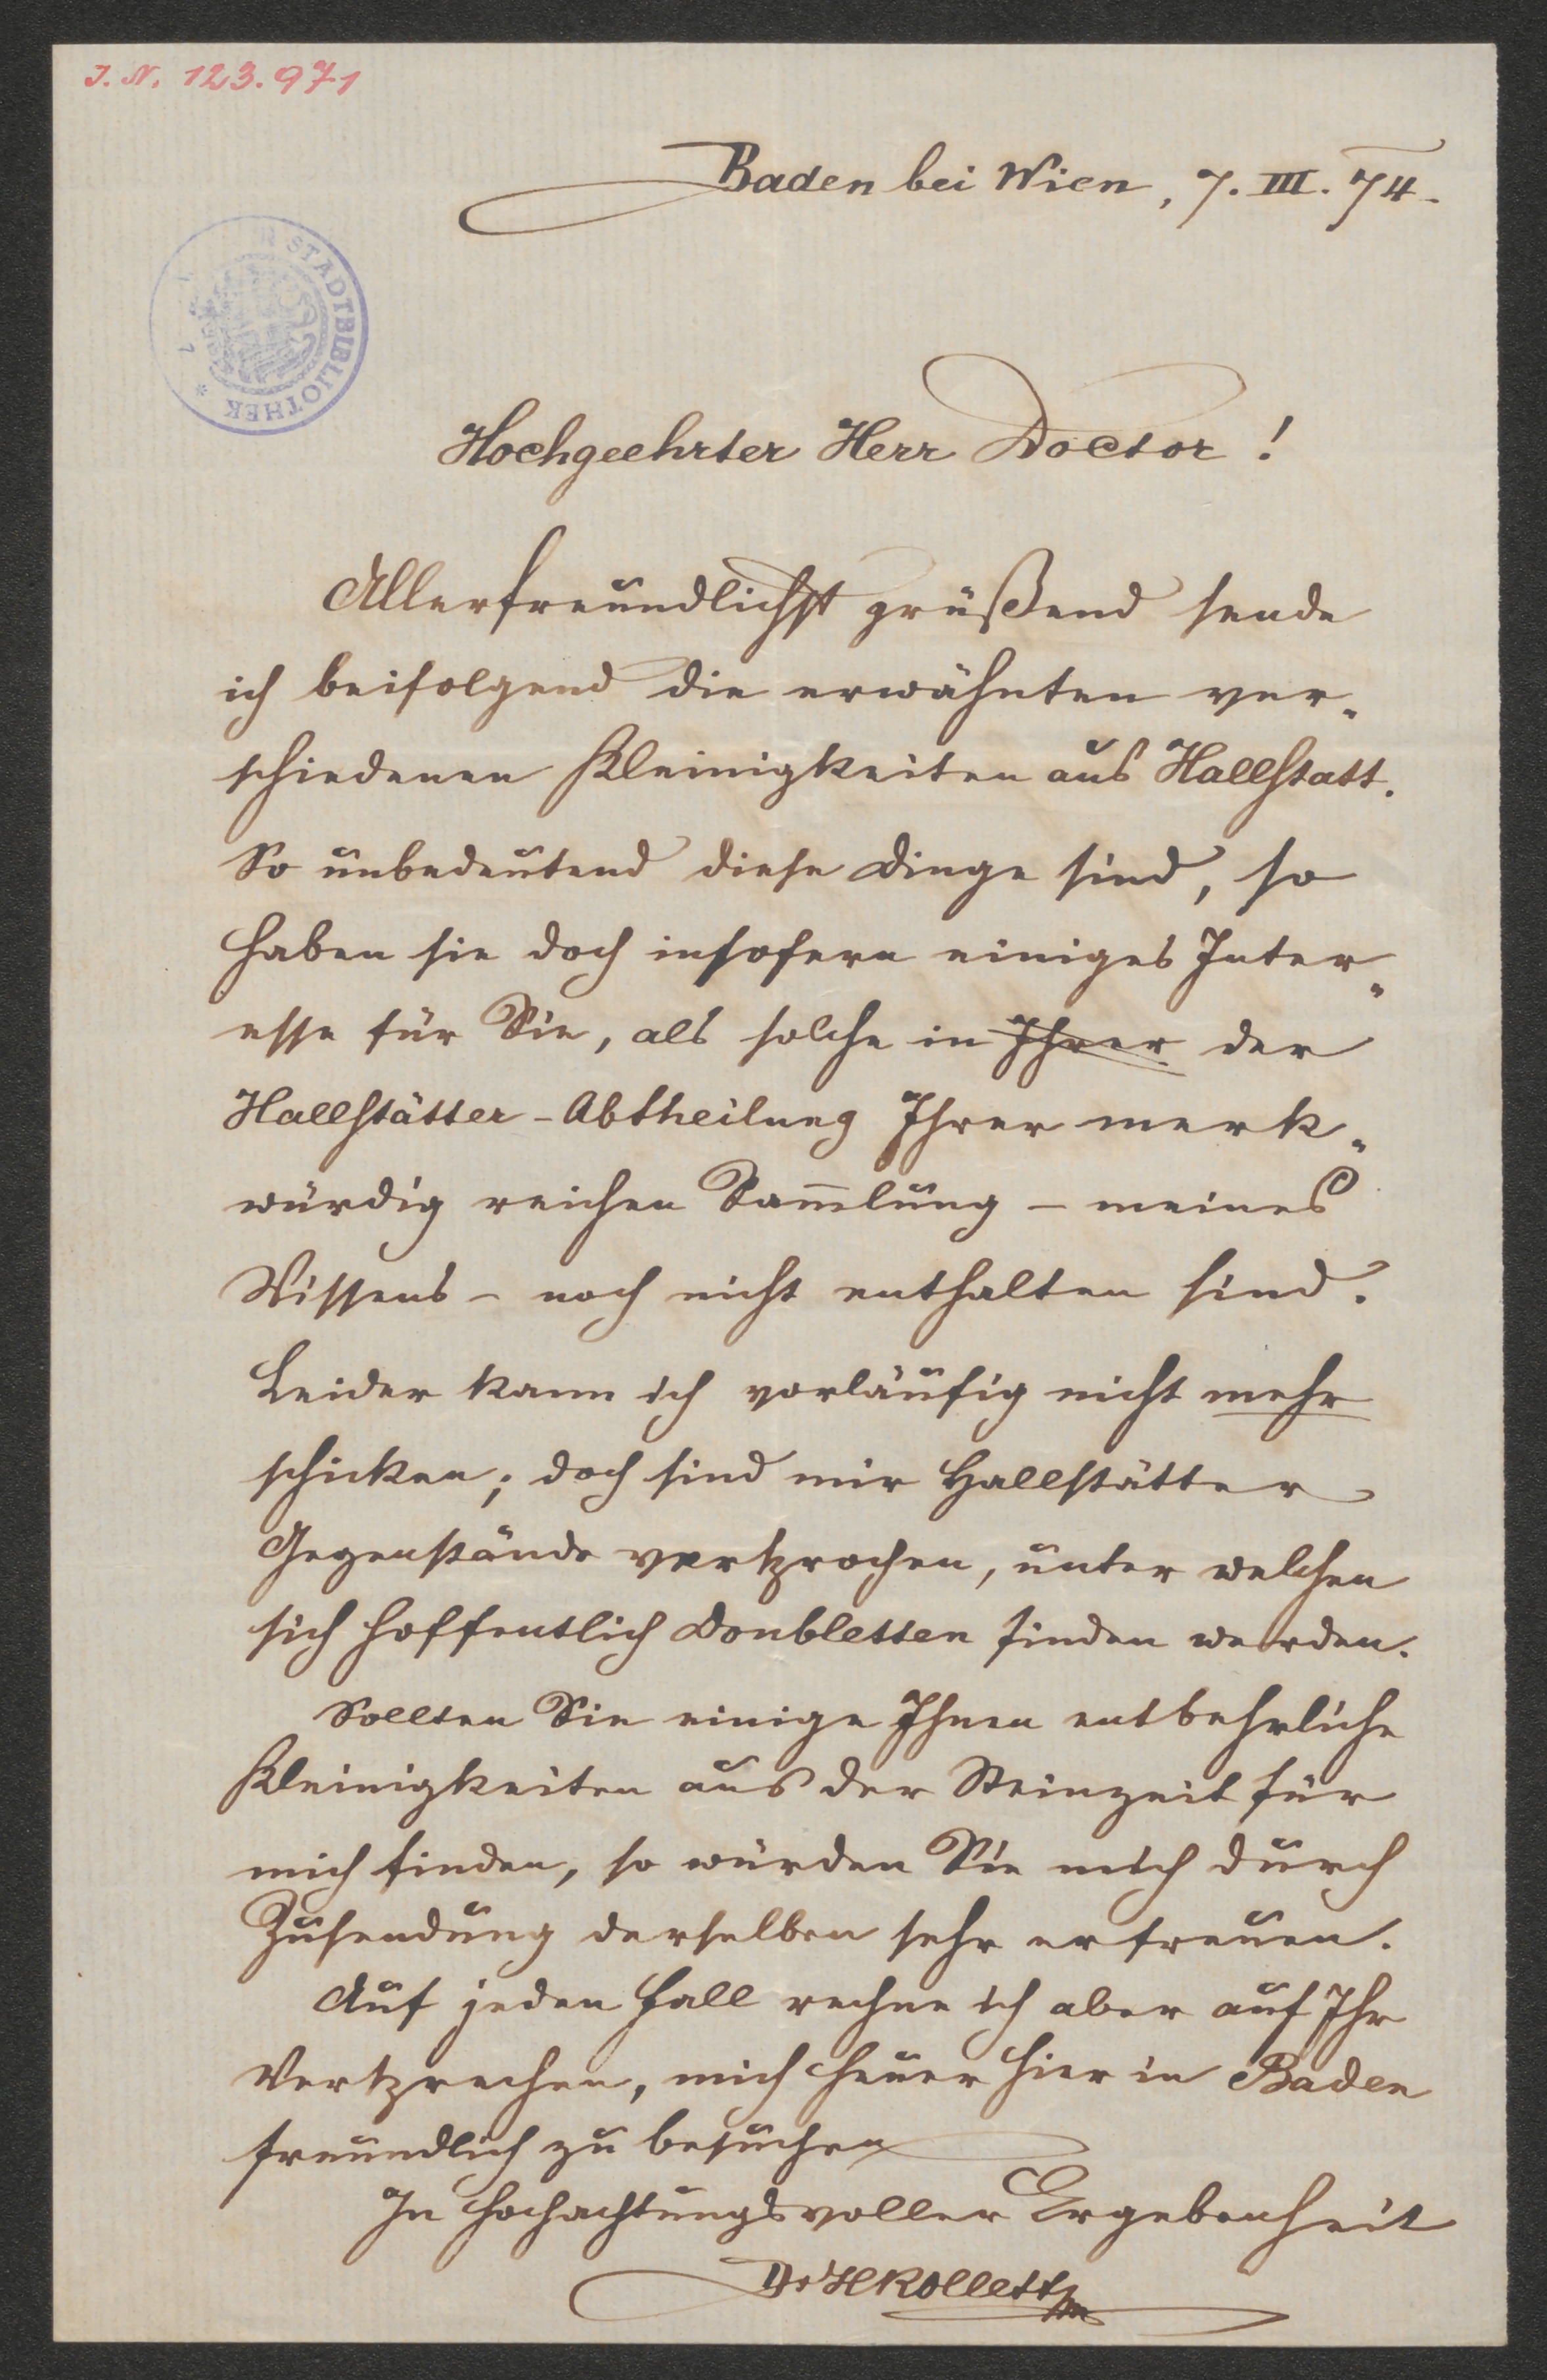 I. N. 123.971
Baden bei Wien, 7. III. 74.
STADTBIBLIOTHEK
Hochgeehrter Herr Doctor!
Allerfreundlichst grüßend sende
ich beifolgend die erwähnten ver„
schiedenen Kleinigkeiten aus Hallstatt.
So unbedeutend diese Dinge sind, so
haben sie doch insofern einiges Inter„
esse für Sie, als solche in Ihrer der
Hallstätter-Abtheilung Ihrer merk„
würdig reichen Sam̅lung – meines
Wissens – noch nicht enthalten sind.
Leider kann ich vorläufig nicht mehr
schicken; doch sind mir Hallstätter
Gegenstände versprochen, unter welchen
sich hoffentlich Doubletten finden werden.
Sollten Sie einige Ihnen entbehrliche
Kleinigkeiten aus der Steinzeit für
mich finden, so würden Sie mich durch
Zusendung derselben sehr erfreuen.
Auf jeden Fall rechne ich aber auf Ihr
Versprechen, mich heuer hier in Baden
freundlich zu besuchen
In hochachtungsvoller Ergebenheit
Dr HRollett